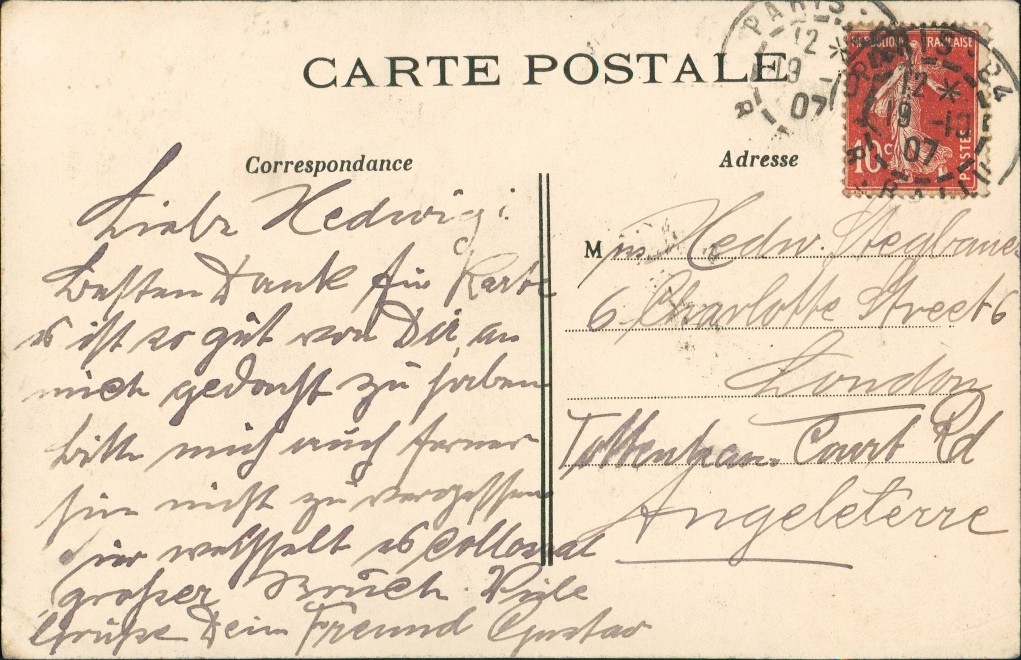 CARTE POSTALE
Correspondance
Liebe Hedwig!
besten Dank für Karte
es ist so gut von Dir, an
mich gedacht zu haben
bitte mich auch ferner
hin nicht zu vergessen
hier es collossal
großer Bruch. Viele
Grüße Dein Freund Gustav
Adresse
M Hedw.
6 Charlotte Street 6
London
Tottenham Court Rd
Angeleterre
PARIS
12
19
07
R
FRANÇAISE
10 c
POSTES
PARIS 24
12
19 -12
07